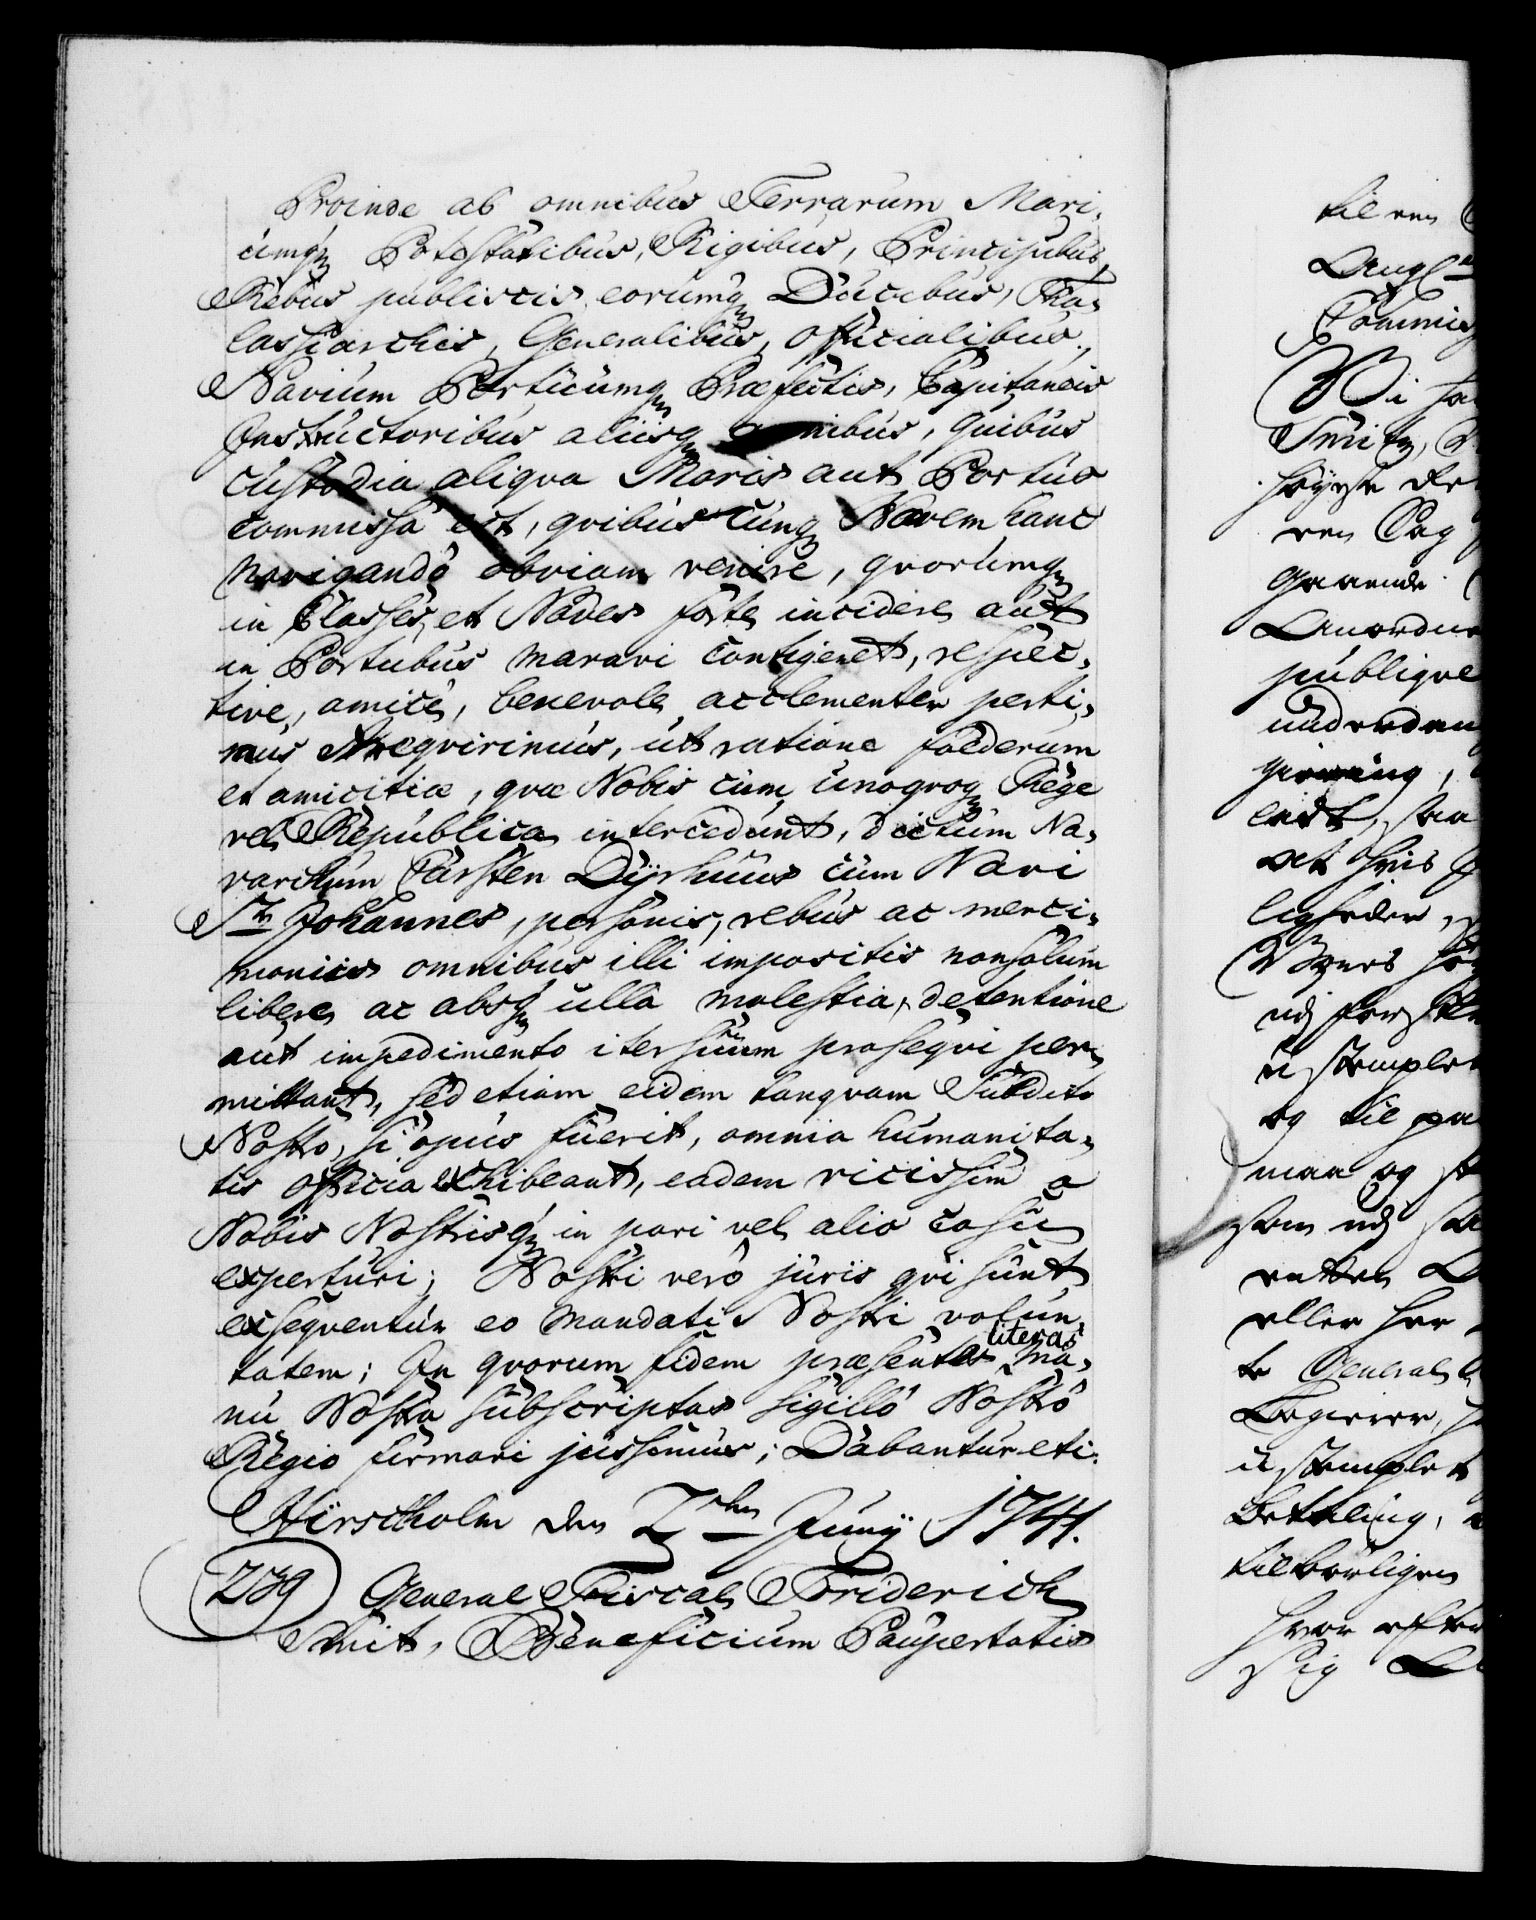 Proinde ab omnibus Terrarum Mari-
umq Potestatibus, Rigibus, Principubus,
Rebus publiscis eorumq Ducibus, Tha-
lassiarchis, Generalibus, officialibus,
Navium Porticumq Præfectis, Capitaneis
Instructoribus aliisq omnibus, quibus
custodia aliqva Maris aut Portus
commissa est, qvibus cunq Navem hanc
navigando obviam venire, qvorumq
in Classes et Naves forte incidere aut
in Portubus marari contigeret, respec-
tive, amice, benevole acclementer perti-
mus reqvirimus, ut ratione foederum
et amicitiæ, qvæ Nobis cum unoqvoq Rege
vel Republica intercedunt, dictum Na-
varchum Carsten Dÿrhuus cum Navi
St Johannes, personis, rebus ac merci-
moniis omnibus illi impositis nonsolum
libere ac absq ulla molestia, detentione
aut impedimento iter suum proseqvi per-
mittant, sed etiam eidem tanqvam Subdito
Nostro, si opus fuerit, omnia humanita-
tis officia exhibeant, eadem vicissim a
Nobis Nostrisq in pari vel alio casu
experturi; Nostri vero juris qvi sunt
exseqventur eo mandati Nostri volun-
tatem; In qvorum fidem præsentes literas ma-
nu Nostra subscriptas sigillo Nostro
Regio firmari jussimus; Dabantur eti.
Hirschholm den 2den Junÿ 1744.
239 General Fiscal Friderich
Smit, Beneficium Paupertatis
til en
Angl
Commis
Wi ha
Smit,
høyst
ren Sag
Anordne
publique
at hvis
ligheder,
Vores
og til pa
man og
som udj
eller
te General
ustemplet
Betaling,
tilbørligen
hvor efter
sig